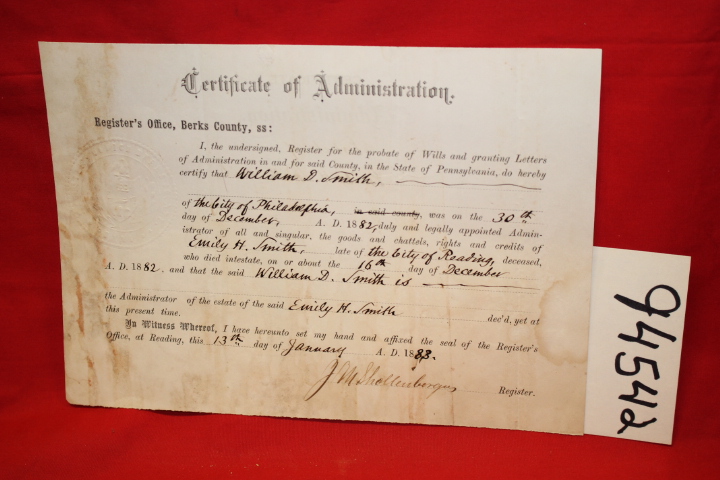 Certificate of Administration.
Register's Office, Berks County, ss:
I, the undersigned, Register for the probate of Wills and granting Letters
of Administration in and for said County, in the State of Pennsylvania, do hereby
certify that William D. Smith,
of the City of Philadelphia, in said county, was on the 30th
day of December, A. D. 1882, duly and legally appointed Admin-
istrator of all and singular, the goods and chattels, rights and credits of
Emily H. Smith, late of the City of Reading, deceased,
who died intestate, on or about the 16th day of December
A. D. 1882. and that the said William D. Smith is
the Administrator of the estate of the said Emily H. Smith dec'd, yet at
this present time.
In Witness Whereof, I have hereunto set my hand and affixed the seal of the Register's
Office, at Reading, this 13th day of January A. D. 1883.
Shollenberger Register.
94542